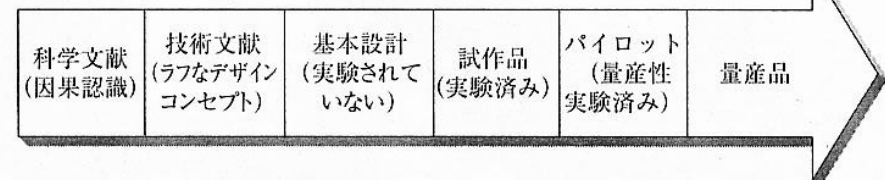 科学文献
(因果認識)
技術文献
(ラフなデザイン
コンセプト)
基本設計
(実験されて
いない)
試作品
(実験済み)
パイロット
(量産性
実験済み)
量産品